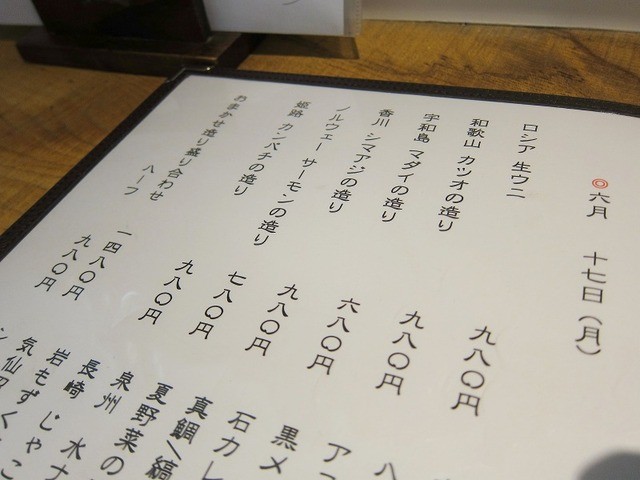 ◎六月 十七日(月)
ロシア 生ウニ 九八〇円
和歌山 カツオの造り 九八〇円
宇和島 マダイの造り 六八〇円
香川 シマアジの造り 九八〇円
ノルウェー サーモンの造り 七八〇円
姫路 カンパチの造り 九八〇円
おまかせ造り盛り合わせ 一四八〇円
ハーフ 九八〇円
ハ
ア
黒メ
石カレ
真鯛/縞
夏野菜の
泉州 水ナ
長崎 じゃこ
岩もずく
気仙
シ